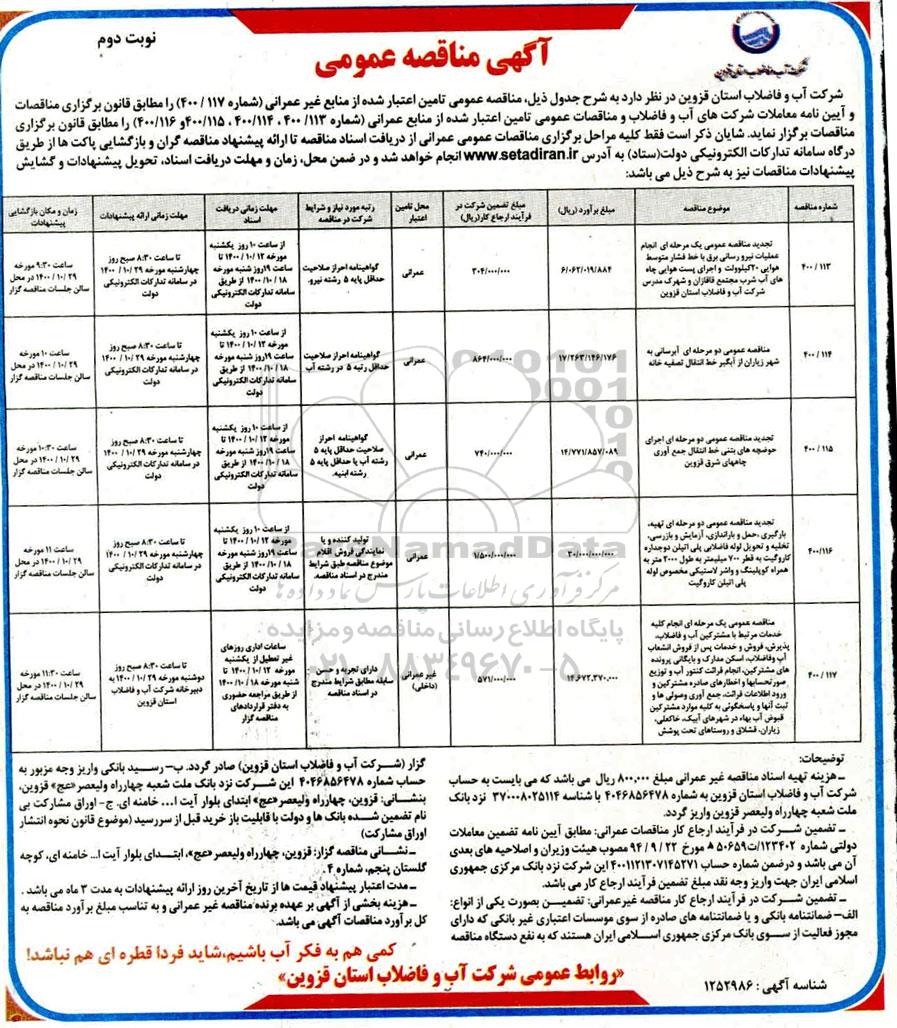 نوبت دوم
آگهی مناقصه عمومی
شرکت آب و فاضلاب استان قزوین
شرکت آب و فاضلاب استان قزوین در نظر دارد به شرح جدول ذیل، مناقصه عمومی تامین اعتبار شده از منابع غیر عمرانی (شماره ۱۱۷ / ۴۰۰) را مطابق قانون برگزاری مناقصات
و آیین نامه معاملات شرکت های آب و فاضلاب و مناقصات عمومی تامین اعتبار شده از منابع عمرانی (شماره ۱۱۳/ ۴۰۰ ، ۱۱۴/ ۴۰۰ ، ۱۱۵/ ۴۰۰و ۱۱۶/ ۴۰۰) را مطابق قانون برگزاری
مناقصات برگزار نماید. شایان ذکر است فقط کلیه مراحل برگزاری مناقصات عمومی عمرانی از دریافت اسناد مناقصه تا ارائه پیشنهاد مناقصه گران و بازگشایی پاکت ها از طریق
درگاه سامانه تدارکات الکترونیکی دولت(ستاد) به آدرس www.setadiran.ir انجام خواهد شد و در ضمن محل، زمان و مهلت دریافت اسناد، تحویل پیشنهادات و گشایش
پیشنهادات مناقصات نیز به شرح ذیل می باشد:
شماره مناقصه
موضوع مناقصه
مبلغ برآورد (ریال)
مبلغ تضمین شرکت در
فرآیند ارجاع کار(ریال)
محل تامین
اعتبار
رتبه مورد نیاز و شرایط
شرکت در مناقصه
مهلت زمانی دریافت
اسناد
مهلت زمانی ارائه پیشنهادات
زمان و مکان بازگشایی
پیشنهادات
۴۰۰ / ۱۱۳
تجدید مناقصه عمومی یک مرحله ای انجام
عملیات نیرو رسانی برق با خط فشار متوسط
هوایی ۲۰کیلوولت و اجرای پست هوایی چاه
های آب شرب مجتمع قاقازان و شهرک مدرس
شرکت آب و فاضلاب استان قزوین
۶/۰۶۲/۰۱۹/۸۸۴
۳۰۴/۰۰۰/۰۰۰
عمرانی
گواهینامه احراز صلاحیت
حداقل پایه ۵ رشته نیرو.
از ساعت ۱۰ روز یکشنبه
مورخه ۱۲ /۱۰ / ۱۴۰۰ تا
ساعت ۱۹روز شنبه مورخه
۱۸ /۱۰ / ۱۴۰۰ از طریق
سامانه تدارکات الکترونیکی
دولت
تا ساعت ۸:۳۰ صبح روز
چهارشنبه مورخه ۲۹ / ۱۰/ ۱۴۰۰
در سامانه تدارکات الکترونیکی
دولت
ساعت ۹:۳۰ مورخه
۲۹ / ۱۰ / ۱۴۰۰ در محل
سالن جلسات مناقصه گزار
۴۰۰ / ۱۱۴
مناقصه عمومی دو مرحله ای آبرسانی به
شهر زیاران از آبگیر خط انتقال تصفیه خانه
۱۷/۲۶۳/۱۴۶/۱۷۶
۸۶۴/۰۰۰/۰۰۰
عمرانی
گواهینامه احراز صلاحیت
حداقل رتبه ۵ در رشته آب
از ساعت ۱۰ روز یکشنبه
مورخه ۱۲ /۱۰ / ۱۴۰۰ تا
ساعت ۱۹روز شنبه مورخه
۱۸ /۱۰ / ۱۴۰۰ از طریق
سامانه تدارکات الکترونیکی
دولت
تا ساعت ۸:۳۰ صبح روز
چهارشنبه مورخه ۲۹ / ۱۰/ ۱۴۰۰
در سامانه تدارکات الکترونیکی
دولت
ساعت ۱۰ مورخه
۲۹ / ۱۰ / ۱۴۰۰ در محل
سالن جلسات مناقصه گزار
۴۰۰ / ۱۱۵
تجدید مناقصه عمومی دو مرحله ای اجرای
حوضچه های بتنی خط انتقال جمع آوری
چاههای شرق قزوین
۱۴/۷۷۱/۸۵۷/۰۸۹
۷۴۰/۰۰۰/۰۰۰
عمرانی
گواهینامه احراز
صلاحیت حداقل پایه ۵
رشته آب یا حداقل پایه ۵
رشته ابنیه.
از ساعت ۱۰ روز یکشنبه
مورخه ۱۲ /۱۰ / ۱۴۰۰ تا
ساعت ۱۹روز شنبه مورخه
۱۸ /۱۰ / ۱۴۰۰ از طریق
سامانه تدارکات الکترونیکی
دولت
تا ساعت ۸:۳۰ صبح روز
چهارشنبه مورخه ۲۹ / ۱۰/ ۱۴۰۰
در سامانه تدارکات الکترونیکی
دولت
ساعت ۱۰:۳۰ مورخه
۲۹ / ۱۰ / ۱۴۰۰ در محل
سالن جلسات مناقصه گزار
۴۰۰/۱۱۶
تجدید مناقصه عمومی دو مرحله ای تهیه،
بارگیری ،حمل و باراندازی، آزمایش و بازرسی،
تخلیه و تحویل لوله فاضلابی پلی اتیلن دوجداره
کاروگیت به قطر ۷۰۰ میلیمتر به طول ۲۰۰۰ متر به
همراه کوپلینگ و واشر لاستیکی مخصوص لوله
پلی اتیلن کاروگیت
۳۰/۰۰۰/۰۰۰/۰۰۰
۱/۵۰۰/۰۰۰/۰۰۰
عمرانی
تولید کننده و یا
نمایندگی فروش اقلام
موضوع مناقصه طبق شرایط
مندرج در اسناد مناقصه.
از ساعت ۱۰ روز یکشنبه
مورخه ۱۲ /۱۰ / ۱۴۰۰ تا
ساعت ۱۹روز شنبه مورخه
۱۸ /۱۰ / ۱۴۰۰ از طریق
سامانه تدارکات الکترونیکی
دولت
تا ساعت ۸:۳۰ صبح روز
چهارشنبه مورخه ۲۹ / ۱۰/ ۱۴۰۰
در سامانه تدارکات الکترونیکی
دولت
ساعت ۱۱ مورخه
۲۹ / ۱۰ / ۱۴۰۰ در محل
سالن جلسات مناقصه گزار
۴۰۰ / ۱۱۷
مناقصه عمومی یک مرحله ای انجام کلیه
خدمات مرتبط با مشترکین آب و فاضلاب،
پذیرش، فروش و خدمات پس از فروش انشعاب
آب وفاضلاب، اسکن مدارک و بایگانی پرونده
های مشترکین، انجام قرائت کنتور آب و توزیع
صورتحسابها و اخطارهای صادره مشترکین و
ورود اطلاعات قرائت، جمع آوری وصولی ها و
ثبت آنها و پاسخگوئی به کلیه موارد مشترکین
قبوض آب بهاء در شهرهای آبیک، خاکعلی،
زیاران، قشلاق و روستاهای تحت پوشش
۱۴,۶۷۲,۳۷۰,۰۰۰
۵۷۱/۰۰۰/۰۰۰
غیر عمرانی
(داخلی)
دارای تجربه و حسن
سابقه مطابق شرایط مندرج
در اسناد مناقصه
ساعات اداری روزهای
غیر تعطیل از یکشنبه
مورخه ۱۲ /۱۰ / ۱۴۰۰ تا
شنبه مورخه ۱۸ /۱۰ / ۱۴۰۰
از طریق مراجعه حضوری
به دفتر قراردادهای
مناقصه گزار
تا ساعت ۸:۳۰ صبح روز
دوشنبه مورخه ۲۹ / ۱۰/ ۱۴۰۰ به
دبیرخانه شرکت آب و فاضلاب
استان قزوین
ساعت ۱۱:۳۰ مورخه
۲۹ / ۱۰ / ۱۴۰۰ در محل
سالن جلسات مناقصه گزار
ParsNamadData
مرکز فرآوری اطلاعات پارس نماد داده ها
پایگاه اطلاع رسانی مناقصه و مزایده
۰۲۱-۸۸۳۴۹۶۷۰-۵
توضیحات:
ـ هزینه تهیه اسناد مناقصه غیر عمرانی مبلغ ۸۰۰,۰۰۰ ریال می باشد که می بایست به حساب
شرکت آب و فاضلاب استان قزوین به شماره ۴۰۴۶۸۵۶۴۷۸ با شناسه ۳۷۰۰۰۸۰۲۵۱۱۴ نزد بانک
ملت شعبه چهارراه ولیعصر قزوین واریز گردد.
ـ تضمین شرکت در فرآیند ارجاع کار مناقصات عمرانی: مطابق آیین نامه تضمین معاملات
دولتی شماره ۱۲۳۴۰۲/ت۵۰۶۵۹ ه مورخ ۲۲ / ۹ / ۹۴ مصوب هیئت وزیران و اصلاحیه های بعدی
آن می باشد و درضمن شماره حساب ۴۰۰۱۱۲۱۳۰۷۱۴۵۲۷۱ این شرکت نزد بانک مرکزی جمهوری
اسلامی ایران جهت واریز وجه نقد مبلغ تضمین فرآیند ارجاع کار می باشد.
ـ تضمین شرکت در فرآیند ارجاع کار مناقصه غیرعمرانی: تضمیـن بصورت یکی از انواع:
الف- ضمانتنامه بانکی و یا ضمانتنامه های صادره از سوی موسسات اعتباری غیر بانکی که دارای
مجوز فعالیت از سـوی بانک مرکزی جمهوری اسـلامی ایران هستند که به نفع دستگاه مناقصه
گزار (شـرکت آب و فاضلاب استان قزوین) صادر گردد. ب- رسـید بانکی واریز وجه مزبور به
حساب شماره ۴۰۴۶۸۵۶۴۷۸ این شـرکت نزد بانک ملت شعبه چهارراه ولیعصر«عج» قزوین،
بنشـانی: قزوین، چهارراه ولیعصر«عج» ابتدای بلوار آیت ا... خامنه ای. ج- اوراق مشارکت بی
نام تضمین شـده بانک ها و دولت با قابلیت باز خرید قبل از سررسید (موضوع قانون نحوه انتشار
اوراق مشارکت)
ـ نشـانی مناقصه گزار: قزوین، چهارراه ولیعصر«عج»، ابتـدای بلوار آیت ا... خامنه ای، کوچه
گلستان پنجم، شماره ۴.
ـ مدت اعتبار پیشنهاد قیمت ها از تاریخ آخرین روز ارائه پیشنهادات به مدت ۳ ماه می باشد .
ـ هزینه بخشی از آگهی بر عهده برنده مناقصه غیر عمرانی و به تناسب مبلغ برآورد مناقصه به
کل برآورد مناقصات آگهی می باشد.
کمی هم به فکر آب باشیم،شاید فردا قطره ای هم نباشد!
«روابط عمومی شرکت آب و فاضلاب استان قزوین»
شناسه آگهی : ۱۲۵۲۹۸۶